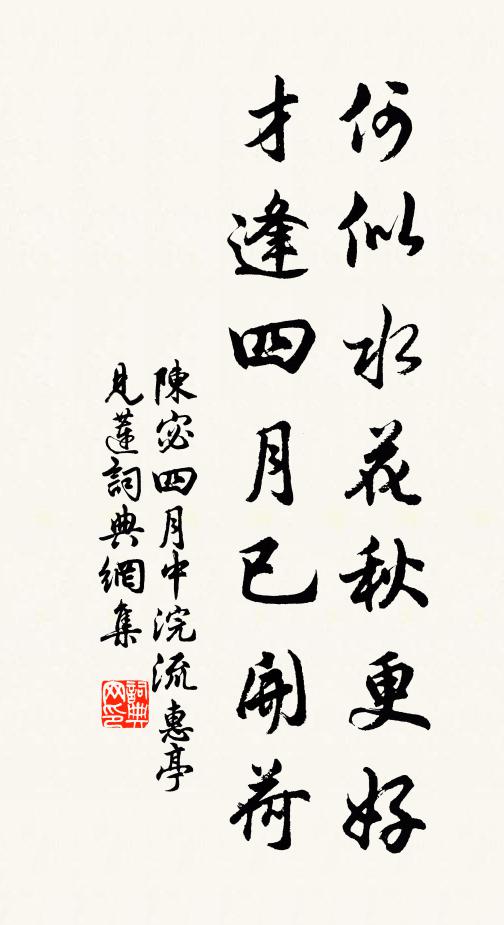 何似水花秋更好
才逢四月已開荷
陳宓四月中浣流惠亭
見蓮詞典網集
詞典网印